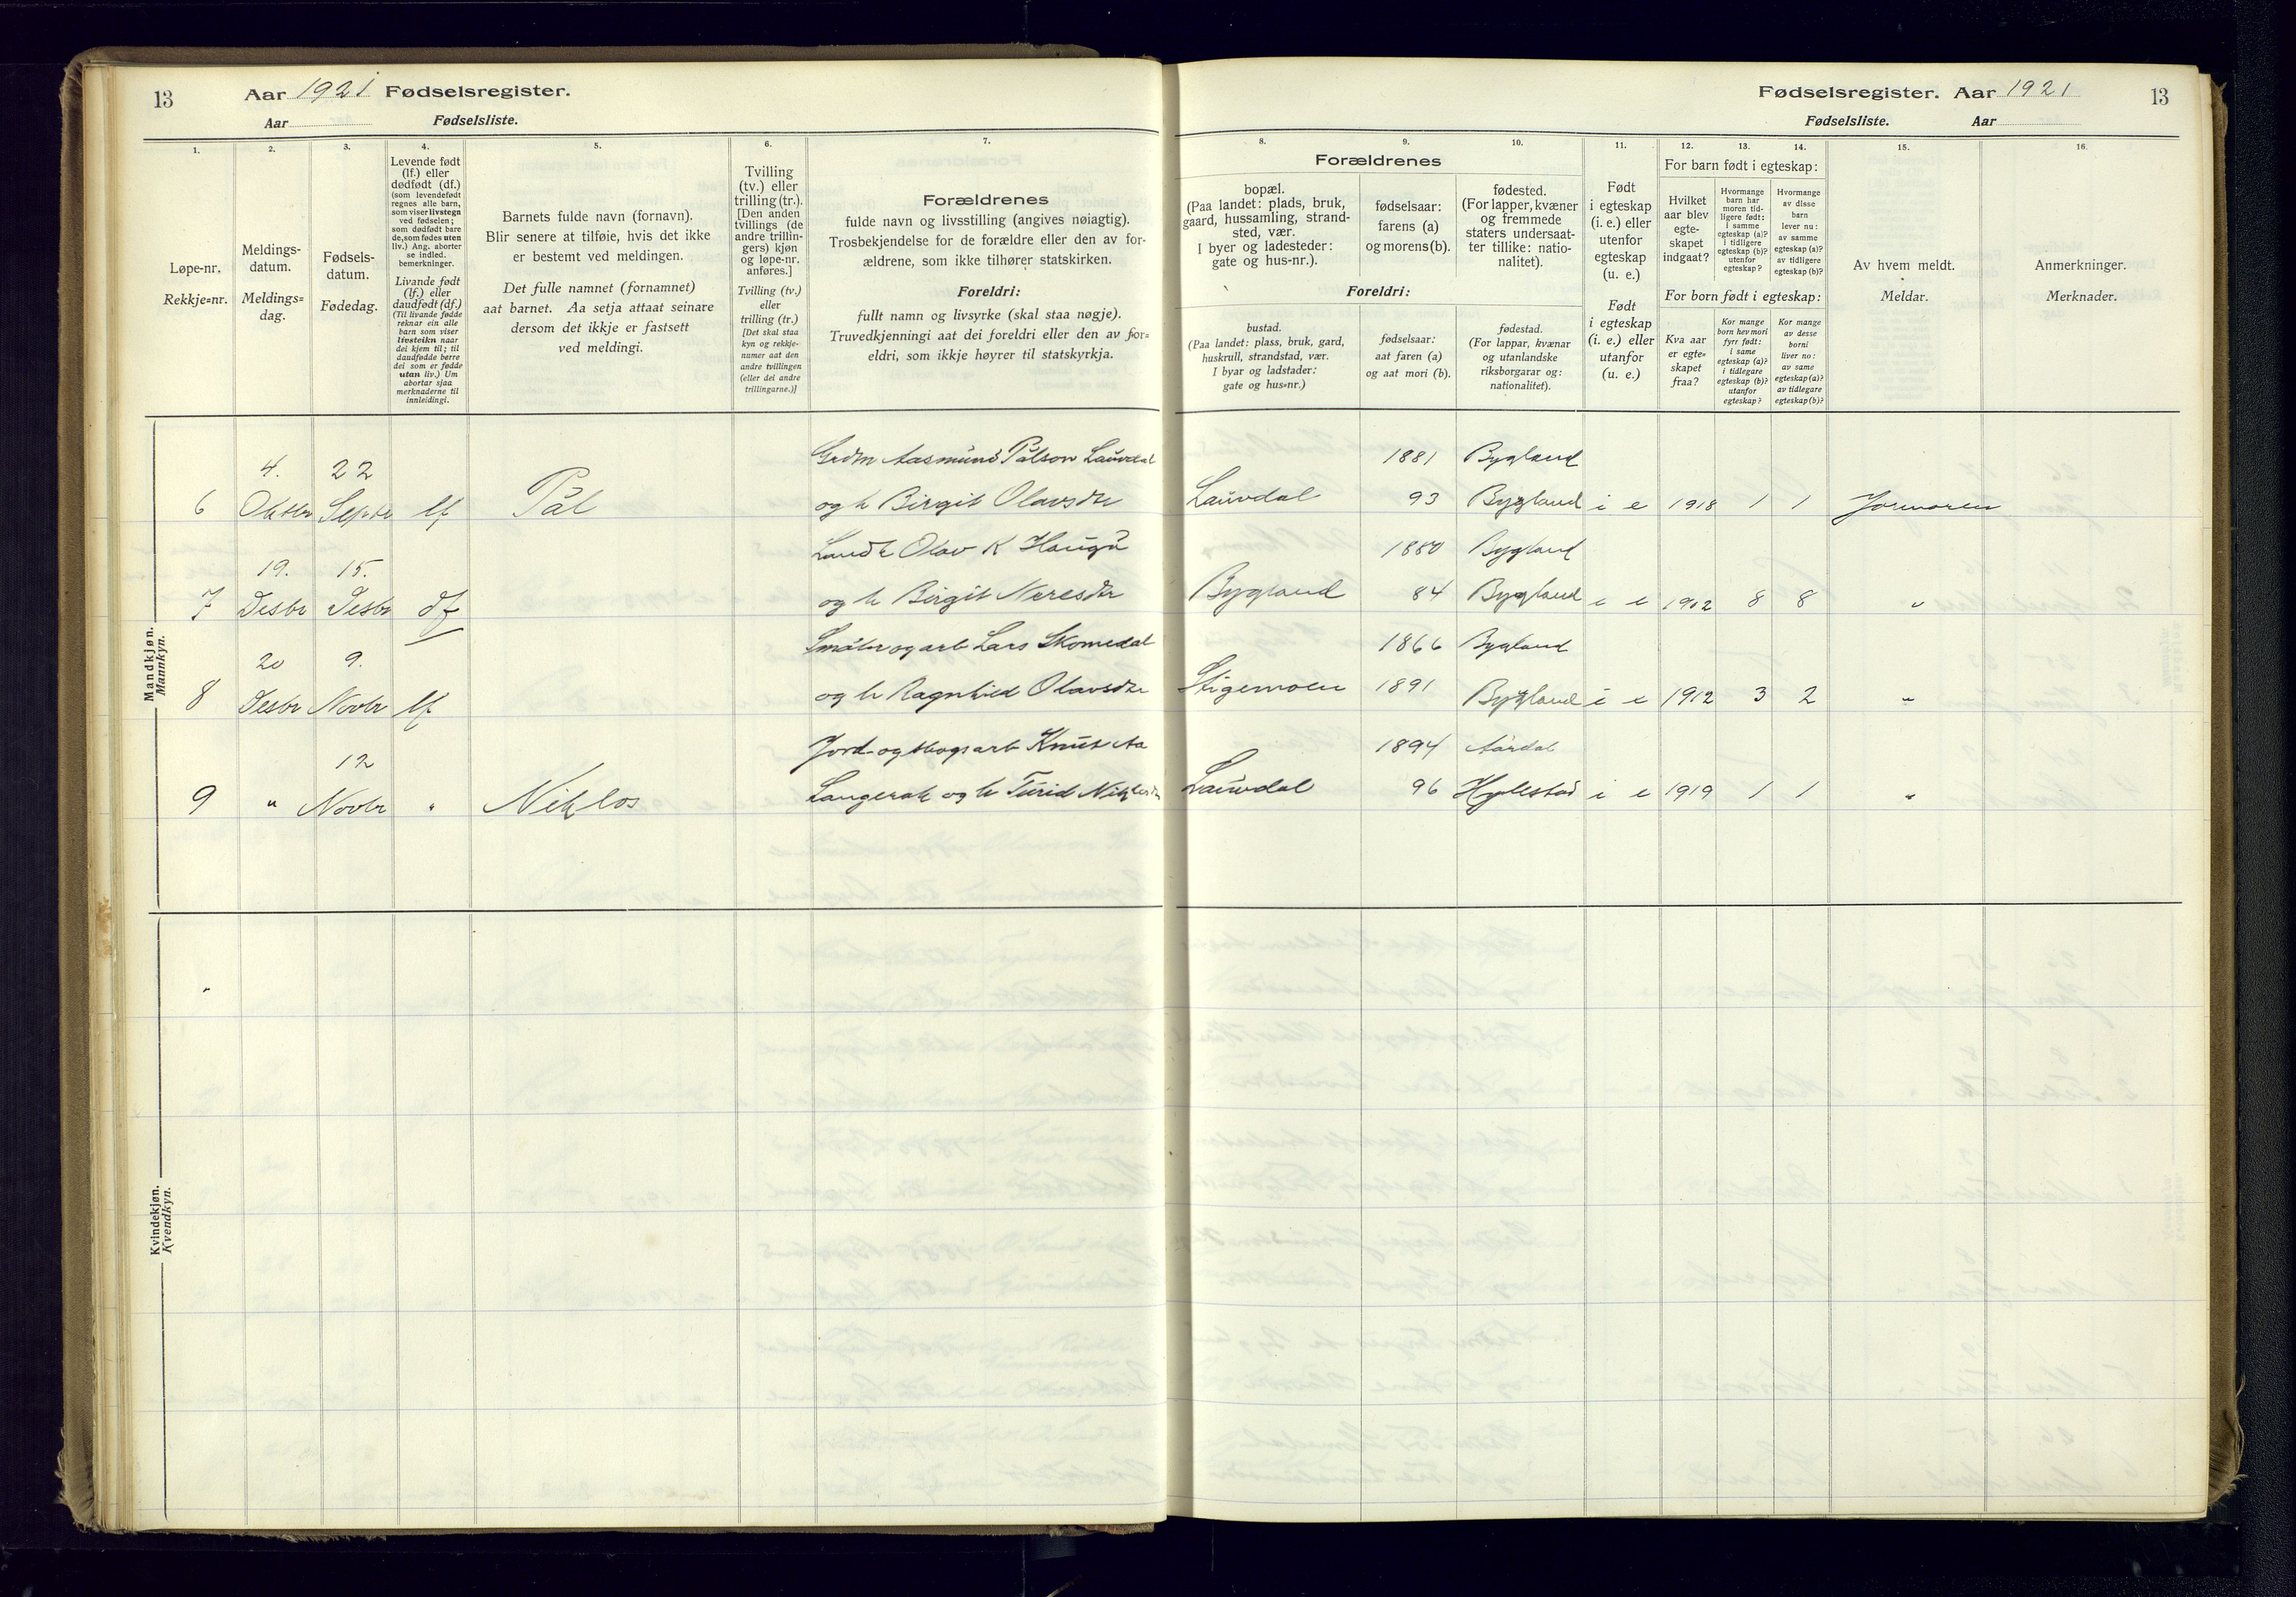 13
Aar 1921 Fødselsregister.
Aar Fødselsliste.
Fødselsregister. Aar 1921
13
Fødselsliste. Aar
1.
2.
3.
4.
5.
6.
7.
8.
9.
10.
11.
12.
13.
14.
15.
16.
Løpe-nr.
Rekkje=nr.
Meldings-
datum.
Meldings=
dag.
Fødsels-
datum.
Fødedag.
Levende født
(lf.) eller
dødfødt (df.)
(som levendefødt
regnes alle barn,
som viser livstegn
ved fødselen;
som dødfødt bare
de, som fødes uten
liv.) Ang. aborter
se indled.
bemerkninger.
Livande født
(lf.) eller
daudfødt (df.)
(Til livande fødde
reknar ein alle
barn som viser
livsteikn naar
dei kjem til; til
daudfødde berre
dei som er fødde
utan liv.) Um
abortar sjaa
merknaderne til
innleidingi.
Barnets fulde navn (fornavn).
Blir senere at tilføie, hvis det ikke
er bestemt ved meldingen.
Det fulle namnet (fornamnet)
aat barnet. Aa setja attaat seinare
dersom det ikkje er fastsett
ved meldingi.
Tvilling
(tv.) eller
trilling (tr.).
[Den anden
tvillings (de
andre trillin-
gers) kjøn
og løpe-nr.
anføres.]
Tvilling (tv.)
eller
trilling (tr.)
[Det skal staa
kyn og rekkje-
numer aat den
andre tvillingen
(eller dei andre
trillingarne.)]
Forældrenes
fulde navn og livsstilling (angives nøiagtig).
Trosbekjendelse for de forældre eller den av for-
ældrene, som ikke tilhører statskirken.
Foreldri:
fullt namn og livsyrke (skal staa nøgje).
Truvedkjenningi aat dei foreldri eller den av for=
eldri, som ikkje høyrer til statskyrkja.
Forældrenes
bopæl.
(Paa landet: plads, bruk,
gaard, hussamling, strand-
sted, vær.
I byer og ladesteder:
gate og hus-nr.).
fødselsaar:
farens (a)
og morens (b).
fødested.
(For lapper, kvæner
og fremmede
staters undersaat-
ter tillike: natio-
nalitet).
Foreldri:
bustad.
(Paa landet: plass, bruk, gard,
huskrull, strandstad, vær.
I byar og ladstader:
gate og hus=nr.)
fødselsaar:
aat faren (a)
og aat mori (b).
fødestad.
(For lappar, kvænar
og utanlandske
riksborgarar og:
nationalitet).
Født
i egteskap
(i. e.) eller
utenfor
egteskap
(u. e.)
Født
i egteskap
(i. e.) eller
utanfor
(u. e.)
For barn født i egteskap:
Hvilket
aar blev
egte-
skapet
indgaat?
Hvormange
barn har
moren tid-
ligere født:
i samme
egteskap (a)?
i tidligere
egteskap (b)?
utenfor
egteskap?
Hvormange
av disse
barn
lever nu:
av samme
egteskap (a)?
av tidligere
egteskap (b)?
For born født i egteskap:
Kva aar
er egte=
skapet
fraa?
Kor mange
born hev mori
fyrr født:
i same
egteskap (a)?
i tidlegare
egteskap (b)?
utanfor
egteskap?
Kor mange
av desse
borni
liver no:
av same
egteskap (a)?
av tidlegare
egteskap (b)?
Av hvem meldt.
Meldar.
Anmerkninger.
Merknader.
Mandkjøn.
Mannkyn.
4. 22 Grdm Aasmund Pålson Lauvdal 1881 Bygland
6 Oktbr Septbr lf Pål og h Birgit Olavsdtr Lauvdal 93 Bygland i e 1918 1 1 Jormoren
19. 15. Olav K Haugå 1880 Bygland
7 Desbr Desbr df og h Birgit Neresdtr Bygland 84 Bygland i e 1912 8 8 "
20 9. Småbr og arb Lars Skomedal 1866 Bygland
8 Desbr Novbr lf og h Ragnhild Olavsdtr Stigemoen 1891 Bygland i e 1912 3 2 "
12 Jord- og skogsarb Knut Aa 1894 Aardal
9 " Novbr " Niklos Langerak og h Turid Lauvdal 96 Hylestad i e 1919 1 1 "
Kvindekjøn.
Kvendkyn.